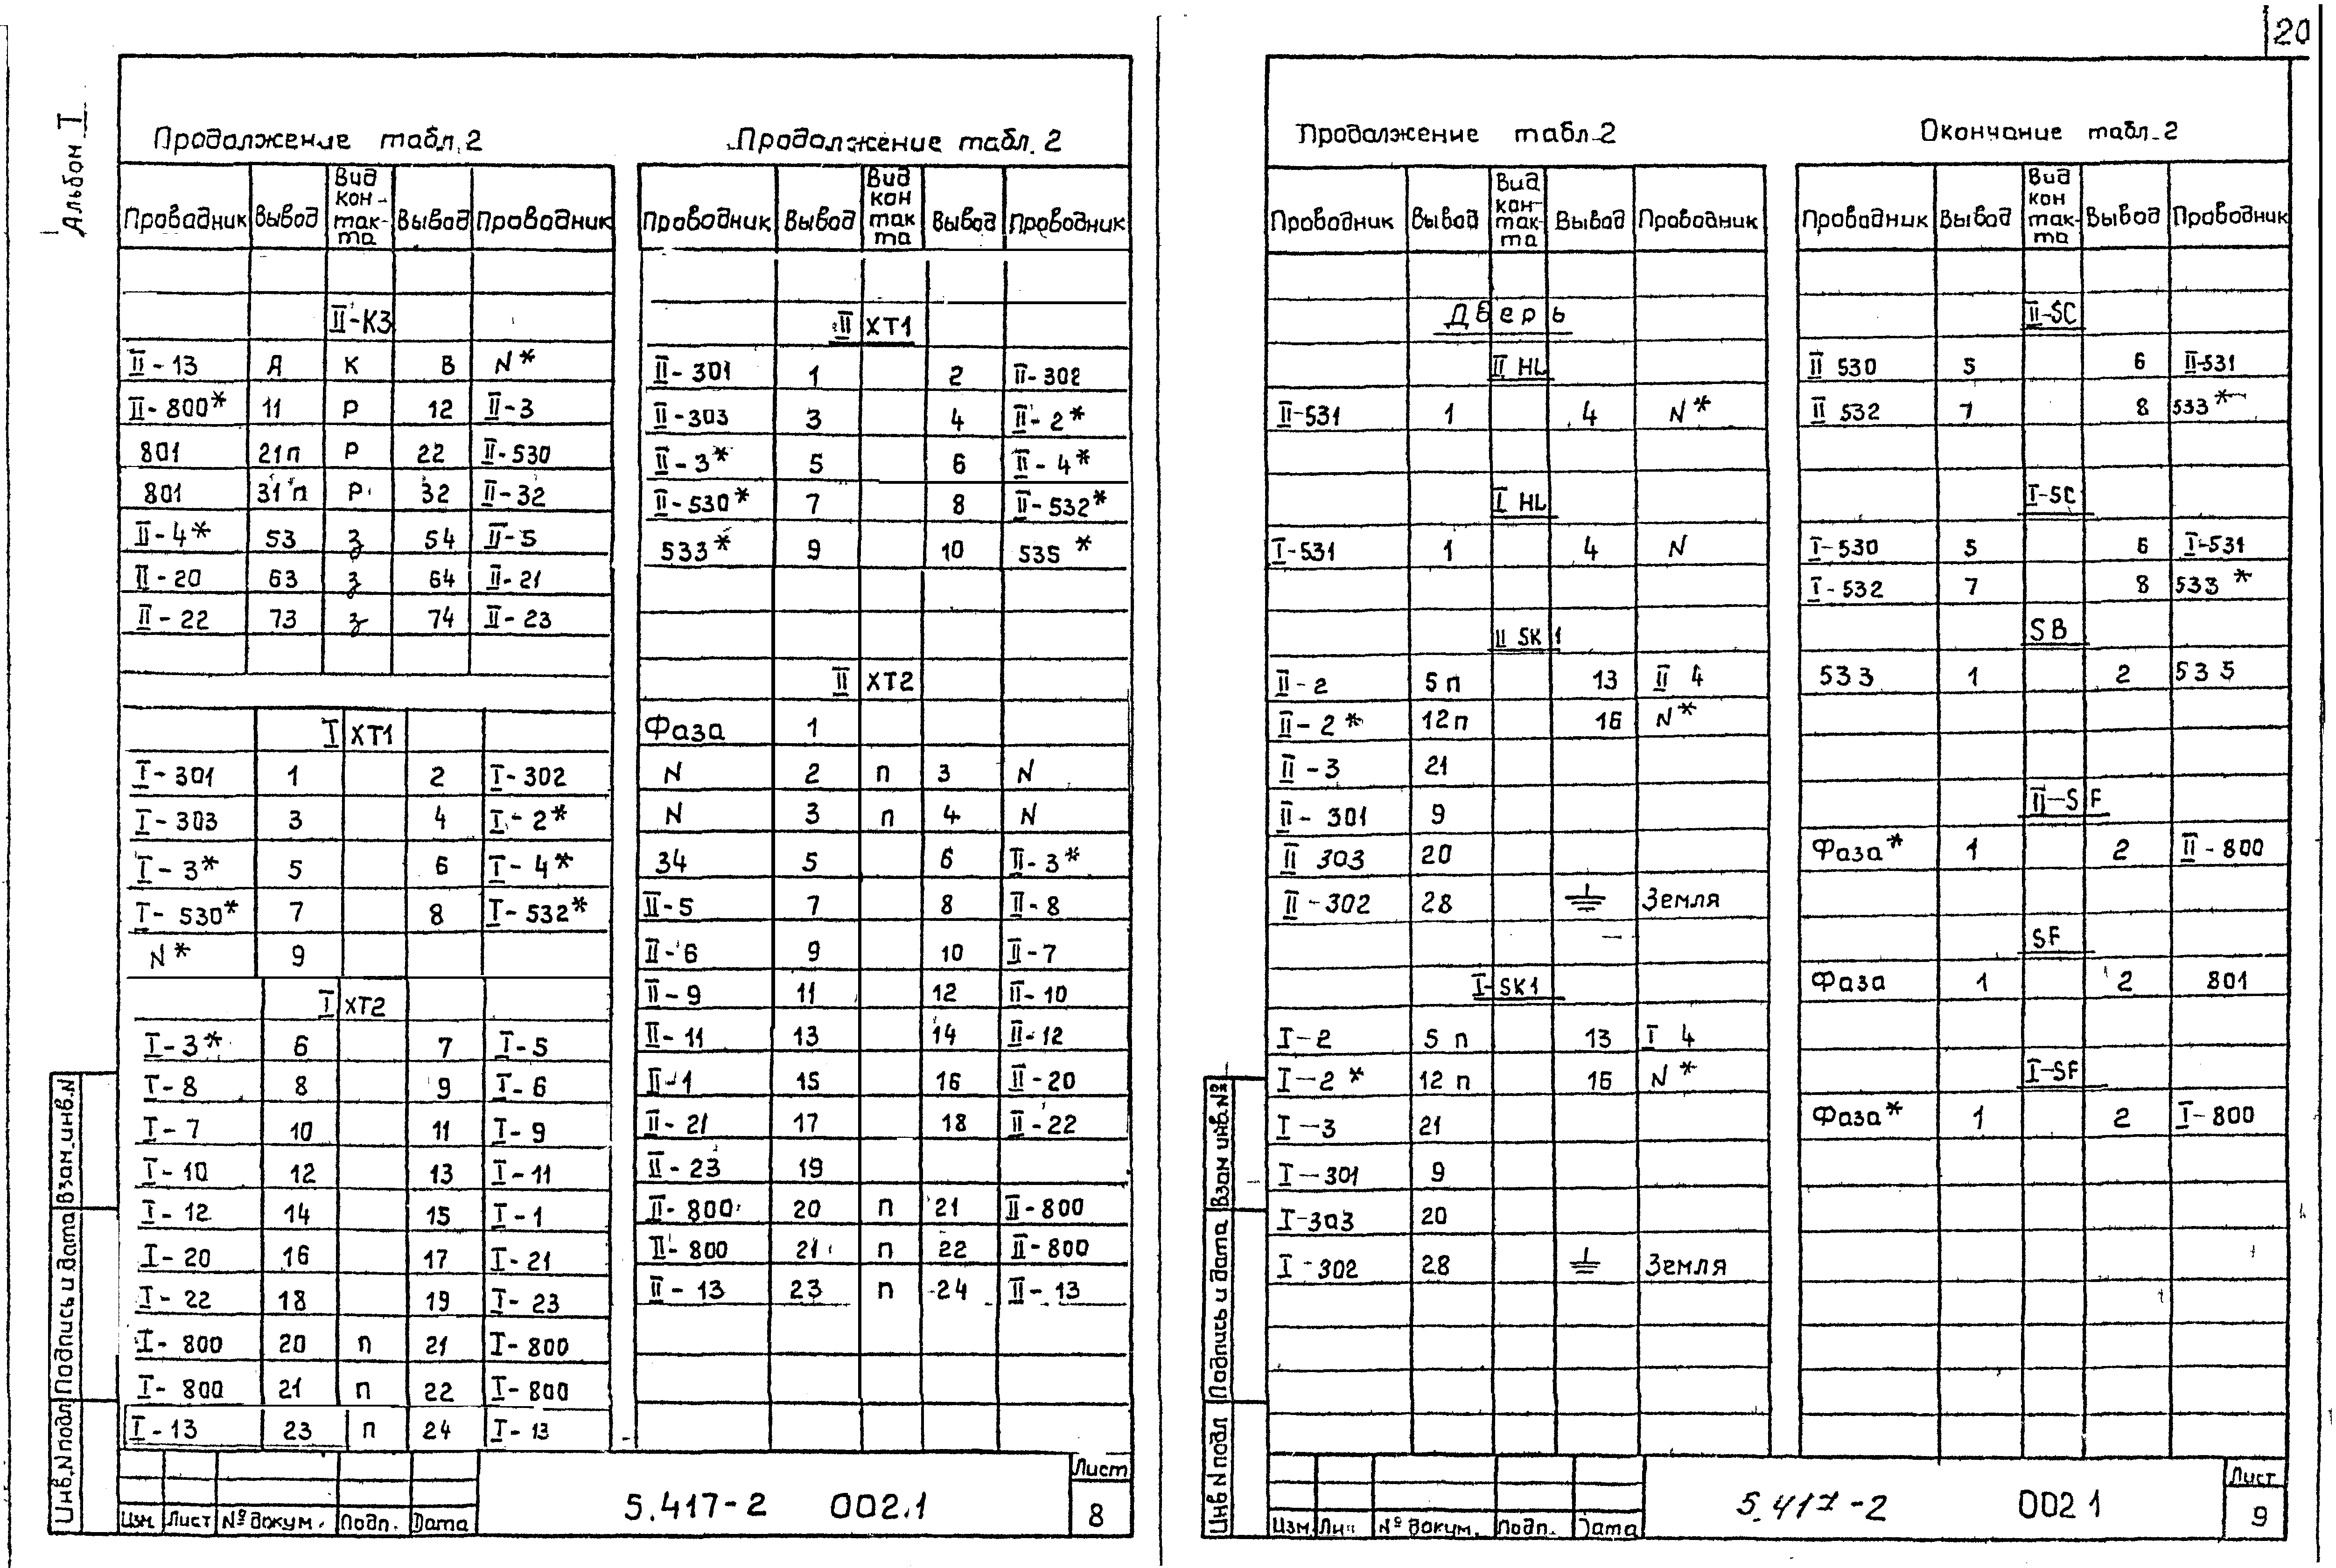 20
Альбом I
Продолжение табл. 2
Проводник Вывод Вид кон-так-та Вывод Проводник
II-К3
II-13 А К В N*
II-800* 11 Р 12 II-3
801 21п Р 22 II-530
801 31п Р 32 II-32
II-4* 53 З 54 II-5
II-20 63 З 64 II-21
II-22 73 З 74 II-23
I XT1
I-301 1 2 I-302
I-303 3 4 I-2*
I-3* 5 6 I-4*
I-530* 7 8 I-532*
N* 9
I XT2
I-3* 6 7 I-5
I-8 8 9 I-6
I-7 10 11 I-9
I-10 12 13 I-11
I-12 14 15 I-1
I-20 16 17 I-21
I-22 18 19 I-23
I-800 20 п 21 I-800
I-800 21 п 22 I-800
I-13 23 п 24 I-13
Продолжение табл. 2
Проводник Вывод Вид кон так та Вывод Проводник
II XT1
II-301 1 2 II-302
II-303 3 4 II-2*
II-3* 5 6 II-4*
II-530* 7 8 II-532*
533* 9 10 535*
II XT2
Фаза 1
N 2 п 3 N
N 3 п 4 N
34 5 6 II-3*
II-5 7 8 II-8
II-6 9 10 II-7
II-9 11 12 II-10
II-11 13 14 II-12
II-1 15 16 II-20
II-21 17 18 II-22
II-23 19
II-800 20 п 21 II-800
II-800 21 п 22 II-800
II-13 23 п 24 II-13
Инв. N подл Подпись и дата Взам. инв. N
Изм. Лист № докум. Подп. Дата
5.417-2 002.1
Лист
8
Продолжение табл. 2
Проводник Вывод Вид кон-так-та Вывод Проводник
Дверь
II HL
II-531 1 4 N*
I HL
I-531 1 4 N
II SK 1
II-2 5п 13 II 4
II-2* 12п 16 N*
II-3 21
II-301 9
II 303 20
II-302 28 Земля
I-SK1
I-2 5 п 13 I 4
I-2* 12 п 16 N*
I-3 21
I-301 9
I-303 20
I-302 28 Земля
Окончание табл. 2
Проводник Вывод Вид кон так-та Вывод Проводник
II-SC
II 530 5 6 II-531
II 532 7 8 533*
I-SC
I-530 5 6 I-531
I-532 7 8 533*
SB
533 1 2 535
II-SF
Фаза* 1 2 II-800
SF
Фаза 1 2 801
I-SF
Фаза* 1 2 I-800
Инв N подл Подпись и дата Взам инв. №
Изм. № докум. Подп. Дата
5.417-2 002 1
Лист
9